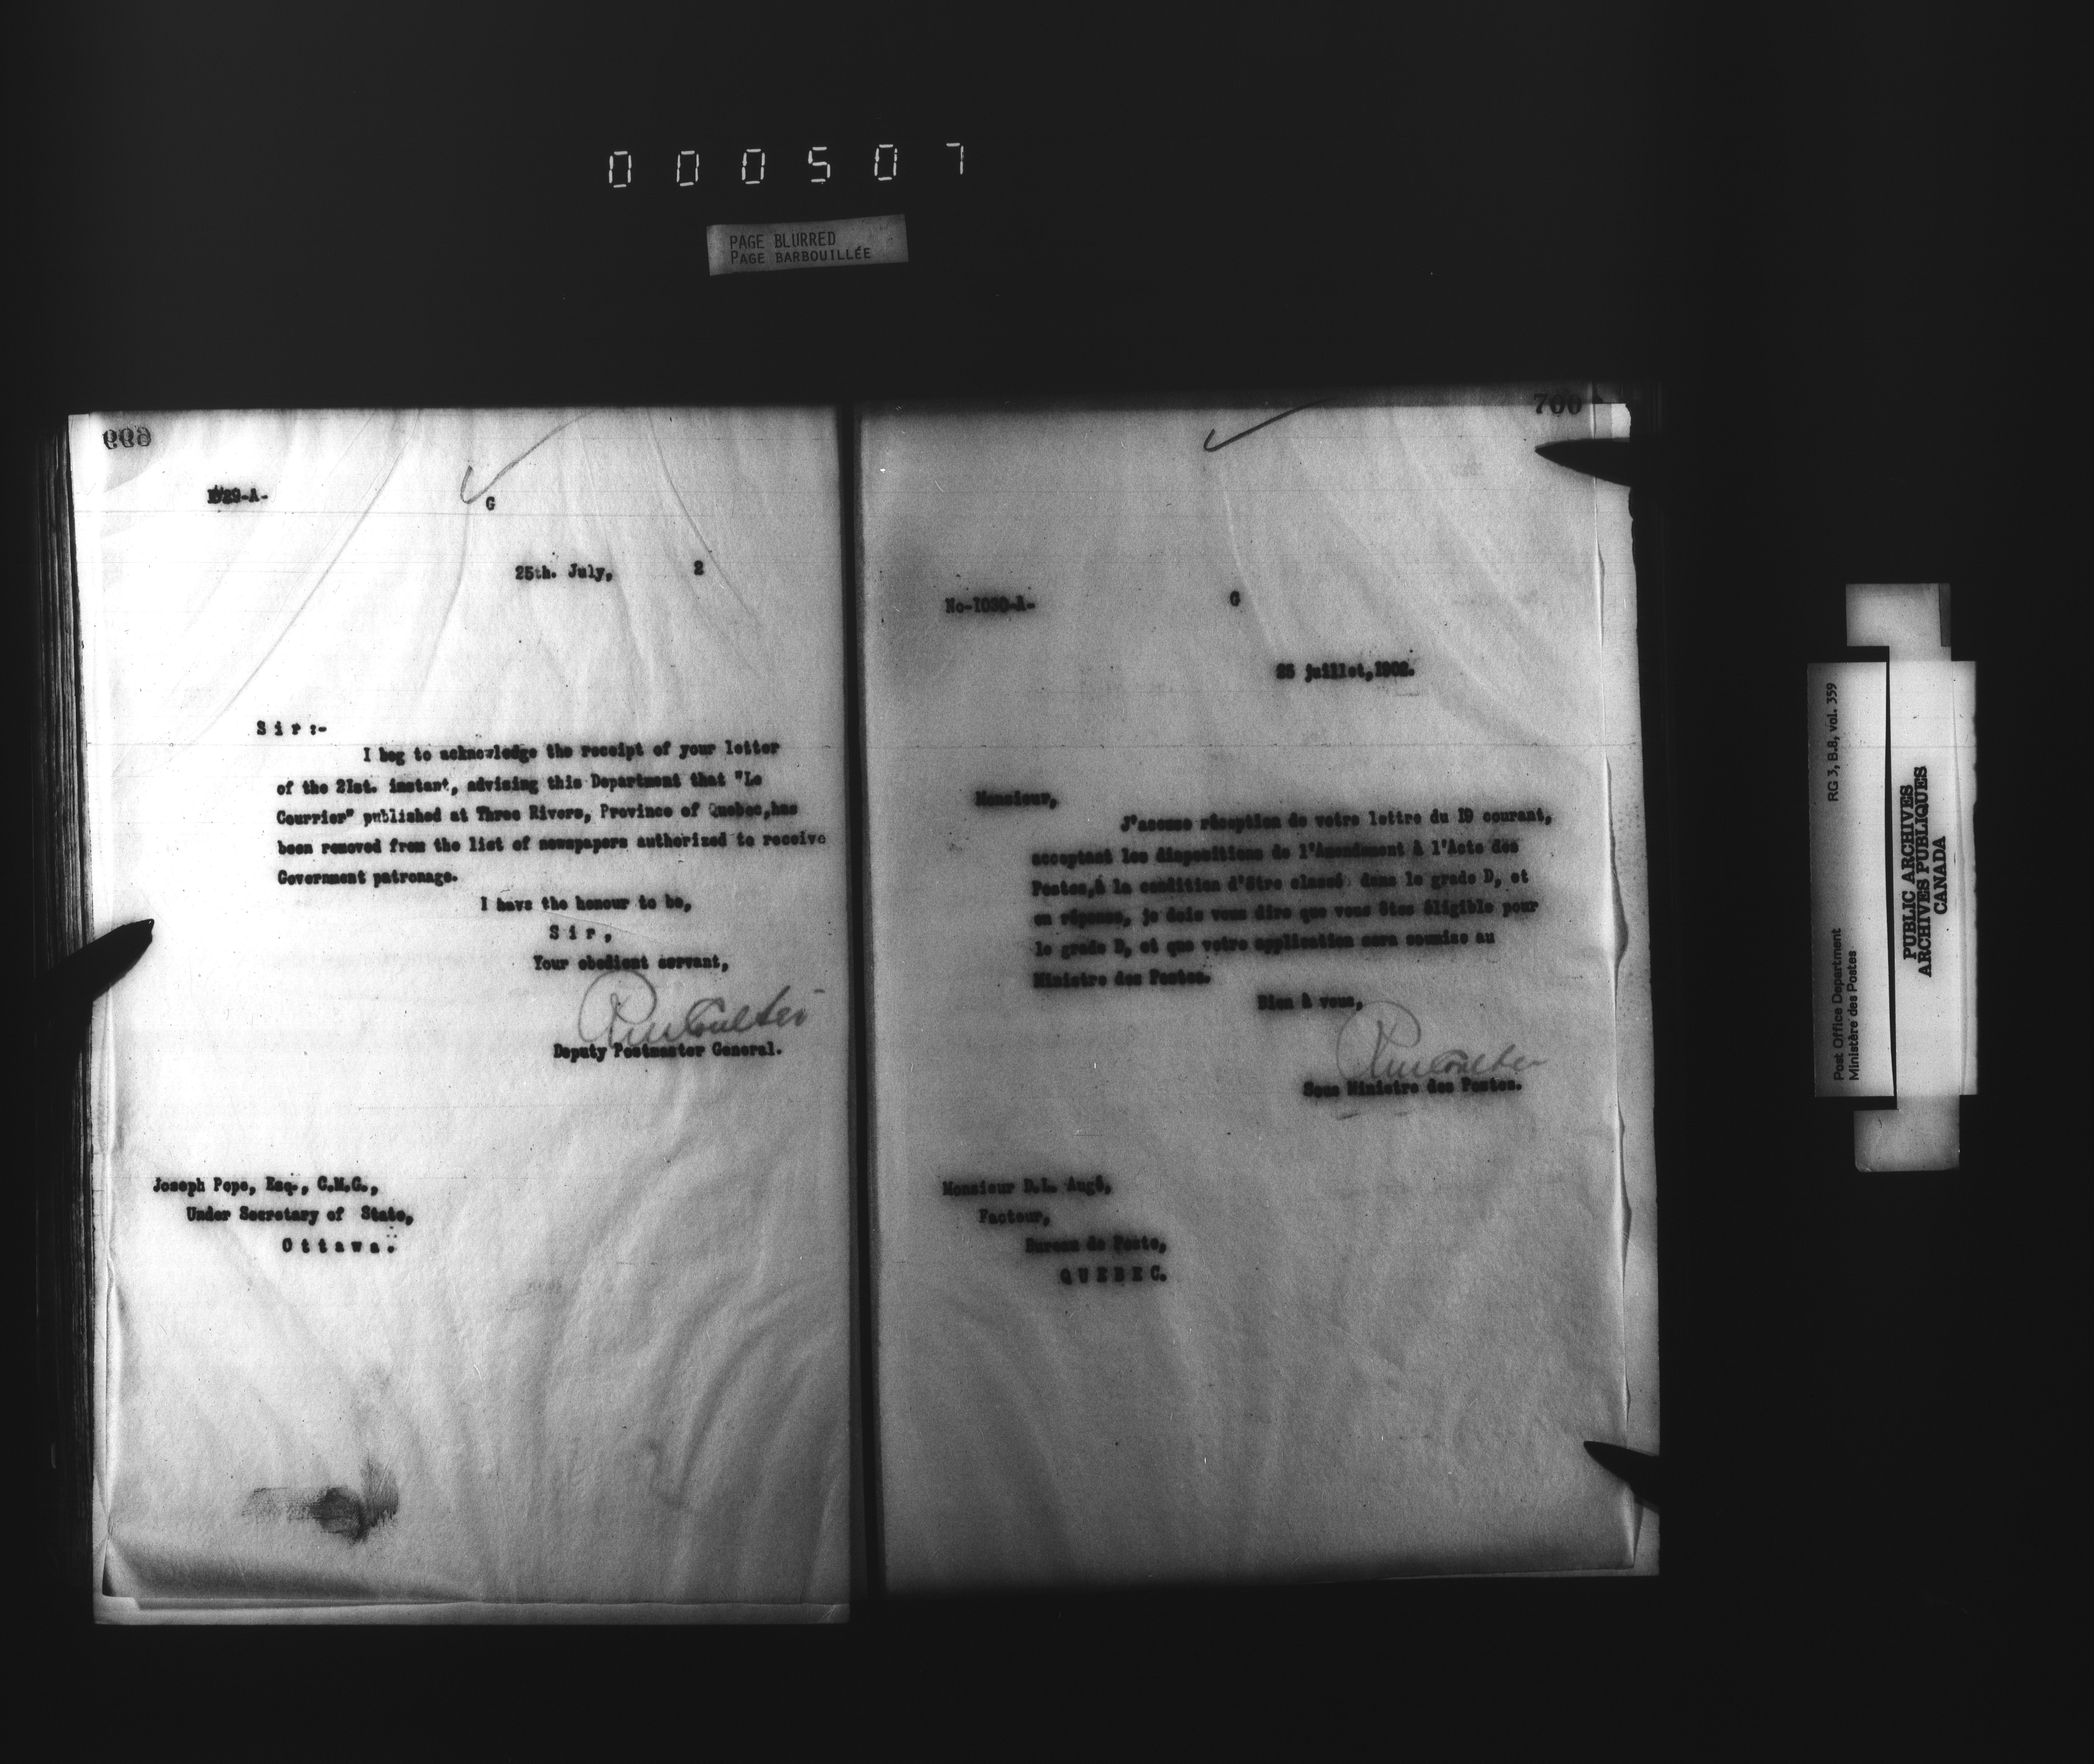 000507
PAGE BLURRED
PAGE BARBOUILLÉE
699
1029-A-
G
25th. July, 2
Sir:-
I beg to acknowledge the receipt of your letter
of the 2Ist. instant, advising this Department that "Le
Courrier" published at Three Rivers, Province of Quebec,has
been removed from the list of newspapers authorized to receive
Government patronage.
I have the honour to be,
Sir,
Your obedient servant,
RMCoulter
Deputy Postmaster General.
Joseph Pope, Esq., C.M.G.,
Under Secretary of State,
Ottawa.
700
No-1030-A-
G
25 juillet,1902.
Monsieur,
J'accuse réception de votre lettre du 19 courant,
acceptant les dispositions de l'Amendement à l'Acte des
Postes,à la condition d'être classé dans le grade D, et
en réponse, je dois vous dire que vous êtes éligible pour
le grade D, et que votre application sera soumise au
Ministre des Postes.
Bien à vous,
RMCoulter
Sous Ministre des Postes.
Monsieur D.L. Augé,
Facteur,
Bureau de Poste,
QUEBEC.
Post Office Department
Ministère des Postes
RG 3, B.8, vol. 359
PUBLIC ARCHIVES
ARCHIVES PUBLIQUES
CANADA